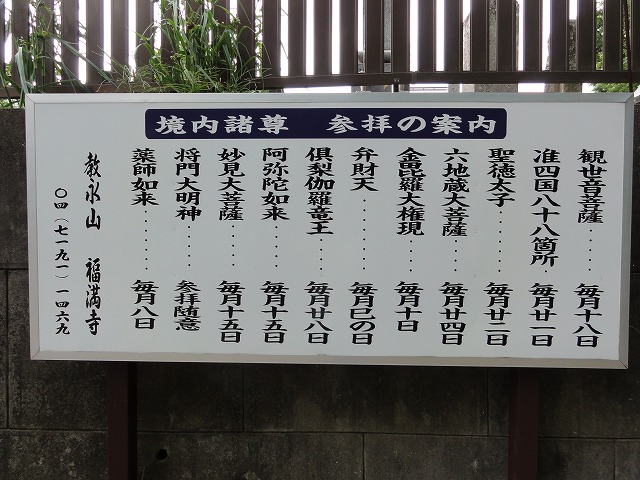 境内諸尊　参拝の案内
観世音菩薩‥‥毎月十八日
准四国八十八箇所　毎月廿一日
聖徳太子‥‥‥毎月廿二日
六地蔵大菩薩‥‥毎月廿四日
金毘羅大権現‥‥毎月十日
弁財天‥‥‥‥毎月巳の日
倶梨伽羅竜王‥‥毎月廿八日
阿弥陀如来‥‥‥毎月十五日
妙見大菩薩‥‥‥毎月十五日
将門大明神‥‥‥参拝随意
薬師如来‥‥‥‥毎月八日
教永山　福満寺
〇四（七一九一）一四六九